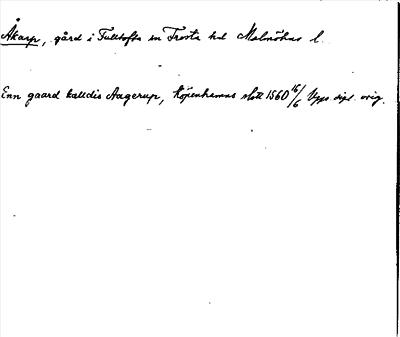 Åkarp, gård i Fulltofta sn Frosta hd Malmöhus l.
Enn gaard kalldis Aagerup, Köpenhamns slott 1560 16/6 Upps. dipl. orig.